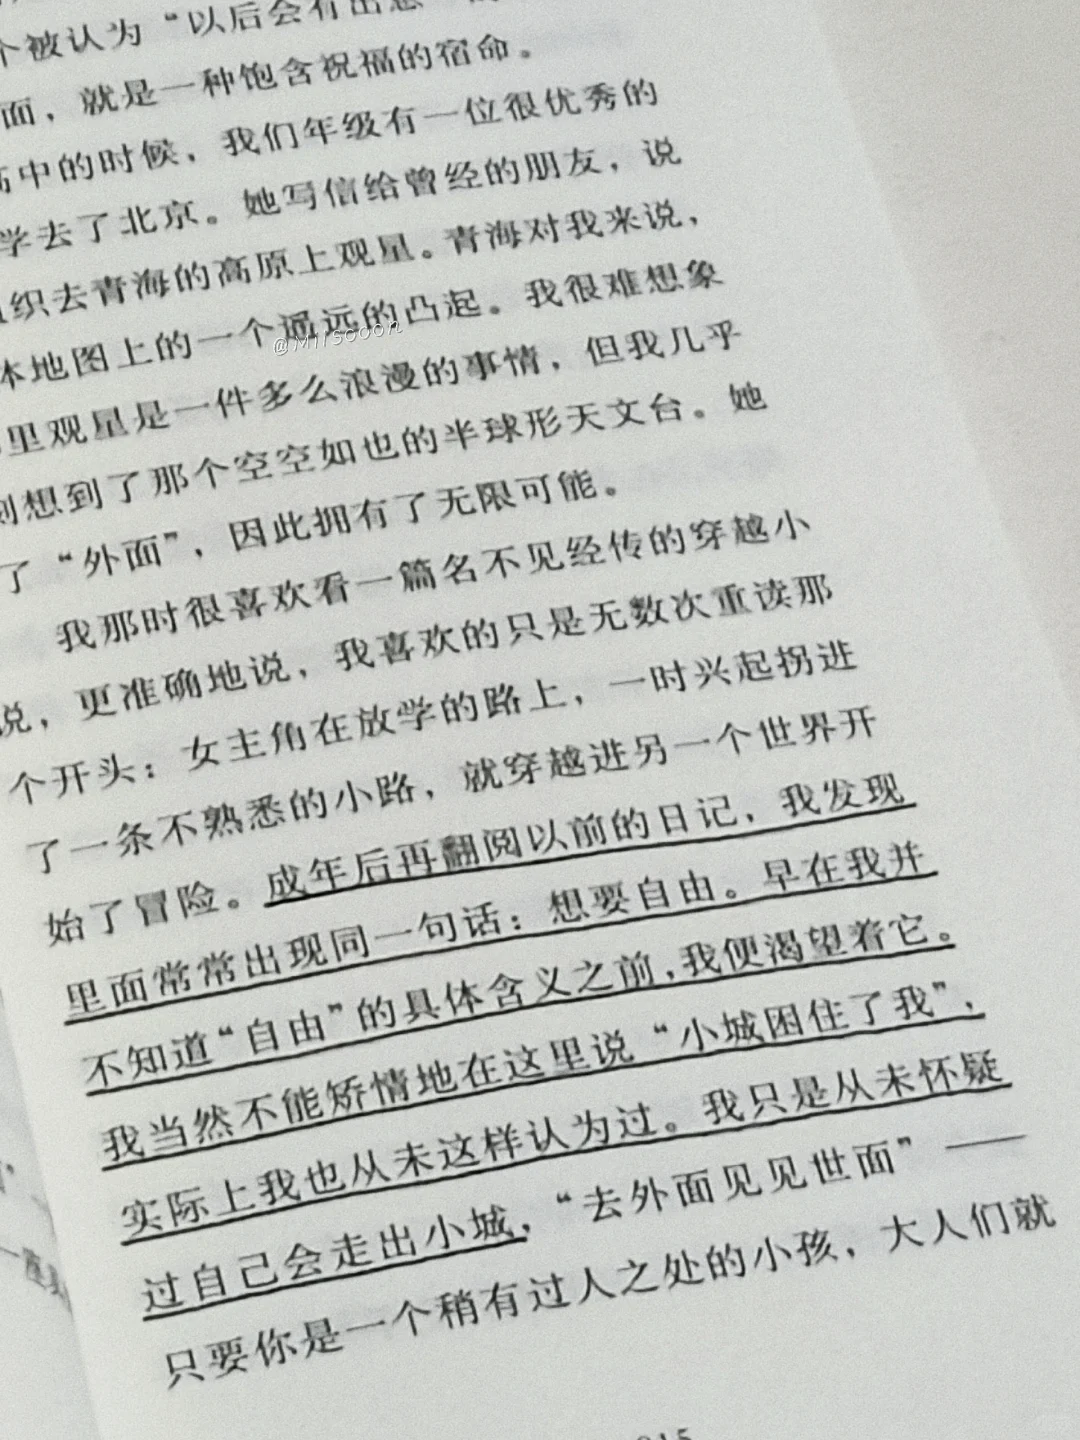 个被认为“以后会有出息”
面，就是一种饱含祝福的宿命。
高中的时候，我们年级有一位很优秀的
学去了北京。她写信给曾经的朋友，说
组织去青海的高原上观星。青海对我来说，
本地图上的一个遥远的凸起。我很难想象
里观星是一件多么浪漫的事情，但我几乎
刻想到了那个空空如也的半球形天文台。她
了“外面”，因此拥有了无限可能。
我那时很喜欢看一篇名不见经传的穿越小
说，更准确地说，我喜欢的只是无数次重读那
个开头：女主角在放学的路上，一时兴起拐进
了一条不熟悉的小路，就穿越进另一个世界开
始了冒险。成年后再翻阅以前的日记，我发现
里面常常出现同一句话：想要自由。早在我并
不知道“自由”的具体含义之前，我便渴望着它。
我当然不能矫情地在这里说“小城困住了我”，
实际上我也从未这样认为过。我只是从未怀疑
过自己会走出小城，“去外面见见世面”——
只要你是一个稍有过人之处的小孩，大人们就
015
@Mirsooon